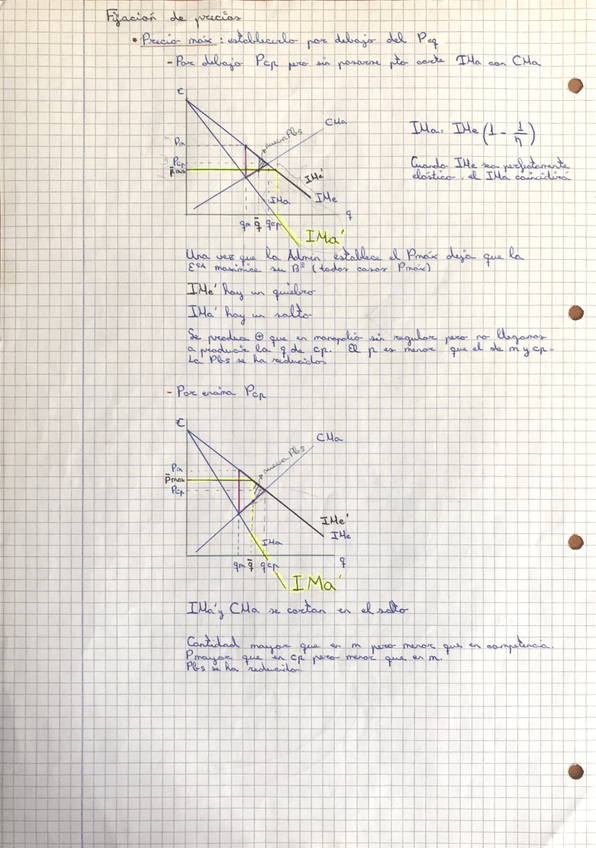 Fijación de precios
• Precio máx: establecerlo por debajo del Peq
- Por debajo Pcp pero sin pasarse pto corte IMa con CMa
C
CMa
nueva Pbs
Pm
Pcp
p̄max
IMe'
IMe
IMa
qm q̄ qcp
q
IMa'
IMa = IMe (1 - 1/η)
Cuando IMe sea perfectamente
elástico, el IMa coincidirá
Una vez que la Admin. establece el Pmáx deja que la
Esa maximice su Bº (todos casos Pmax)
IMe' hay un quiebro
IMa' hay un salto
Se produce ⊕ que en monopolio sin regular pero no llegamos
a producir la q de cp. El p es menor que el de m y cp.
La Pbs se ha reducido.
- Por encima Pcp
C
CMa
nueva Pbs
Pm
p̄max
Pcp
IMe'
IMe
IMa
qm q̄ qcp
q
IMa'
IMa' y CMa se cortan en el salto
Cantidad mayor que en m pero menor que en competencia.
P mayor que en cp pero menor que en m.
Pbs se ha reducido